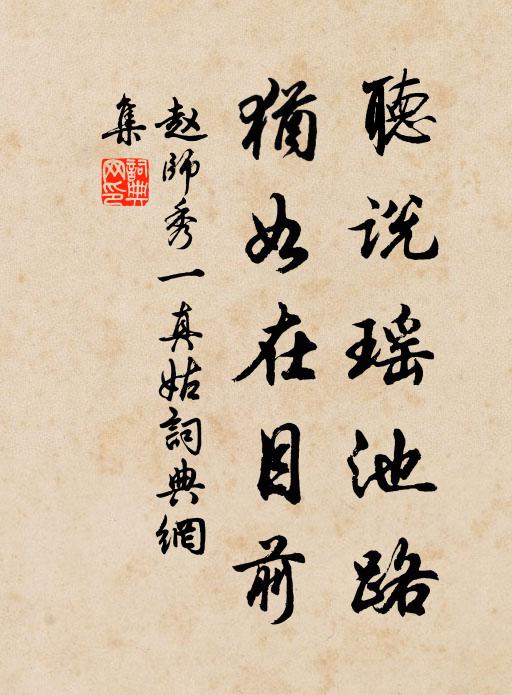 聽説瑶池路
猶如在目前
赵師秀一真姑詞典網
集
詞典网印